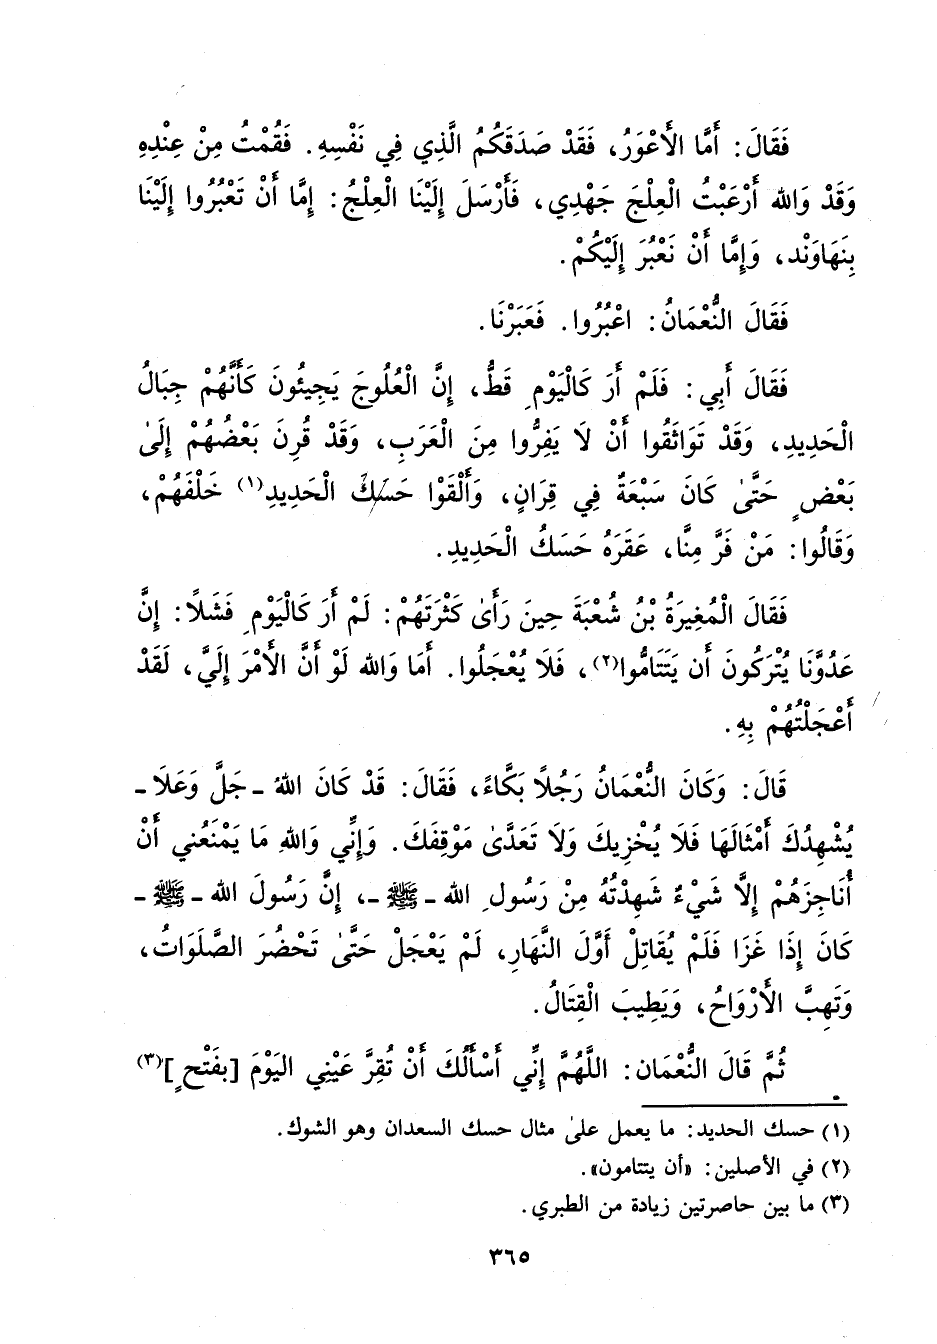 فَقَالَ: أَمَّا الْأَعْوَرُ، فَقَدْ صَدَقَكُمُ الَّذِي فِي نَفْسِهِ. فَقُمْتُ مِنْ عِنْدِهِ
وَقَدْ وَالله أَرْعَبْتُ الْعِلْجَ جَهْدِي، فَأَرْسَلَ إِلَيْنَا الْعِلْجُ: إِمَّا أَنْ تَعْبُرُوا إِلَيْنَا
بِنَهَاوَنْد، وَإِمَّا أَنْ نَعْبُرَ إِلَيْكُمْ.
فَقَالَ النُّعْمَانُ: اعْبُرُوا. فَعَبَرْنَا.
فَقَالَ أَبِي: فَلَمْ أَرَ كَالْيَوْمِ قَطُّ، إِنَّ الْعُلُوجَ يَجِيئُونَ كَأَنَّهُمْ جِبَالُ
الْحَدِيدِ، وَقَدْ تَوَاثَقُوا أَنْ لَا يَفِرُّوا مِنَ الْعَرَبِ، وَقَدْ قُرِنَ بَعْضُهُمْ إِلَىٰ
بَعْضٍ حَتَّىٰ كَانَ سَبْعَةٌ فِي قِرَانٍ، وَأَلْقَوْا حَسَكَ الْحَدِيدِ(١) خَلْفَهُمْ،
وَقَالُوا: مَنْ فَرَّ مِنَّا، عَقَرَهُ حَسَكُ الْحَدِيدِ.
فَقَالَ الْمُغِيرَةُ بْنُ شُعْبَةَ حِينَ رَأَىٰ كَثْرَتَهُمْ: لَمْ أَرَ كَالْيَوْمِ فَشَلًا: إِنَّ
عَدُوَّنَا يُتْرَكُونَ أَن يَتَتَامُّوا(٢)، فَلَا يُعْجَلُوا. أَمَا وَالله لَوْ أَنَّ الْأَمْرَ إِلَيَّ، لَقَدْ
أَعْجَلْتُهُمْ بِهِ.
قَالَ: وَكَانَ النُّعْمَانُ رَجُلًا بَكَّاءً، فَقَالَ: قَدْ كَانَ اللهُ ـ جَلَّ وَعَلَا ـ
يُشْهِدُكَ أَمْثَالَهَا فَلَا يُخْزِيكَ وَلَا تَعَدَّىٰ مَوْقِفَكَ. وَإِنِّي وَاللهِ مَا يَمْنَعُنِي أَنْ
أُنَاجِزَهُمْ إِلَّا شَيْءٌ شَهِدْتُهُ مِنْ رَسُولِ الله ـ ﷺ ـ، إِنَّ رَسُولَ الله ـ ﷺ ـ
كَانَ إِذَا غَزَا فَلَمْ يُقَاتِلْ أَوَّلَ النَّهَارِ، لَمْ يَعْجَلْ حَتَّىٰ تَحْضُرَ الصَّلَوَاتُ،
وَتَهِبَّ الْأَرْوَاحُ، وَيَطِيبَ الْقِتَالُ.
ثُمَّ قَالَ النُّعْمَان: اللَّهُمَّ إِنِّي أَسْأَلُكَ أَنْ تُقِرَّ عَيْنِي الْيَوْمَ [بِفَتْحٍ](٣)
(١) حسك الحديد: ما يعمل علىٰ مثال حسك السعدان وهو الشوك.
(٢) في الأصلين: «أن يتتامون».
(٣) ما بين حاصرتين زيادة من الطبري.
٣٦٥